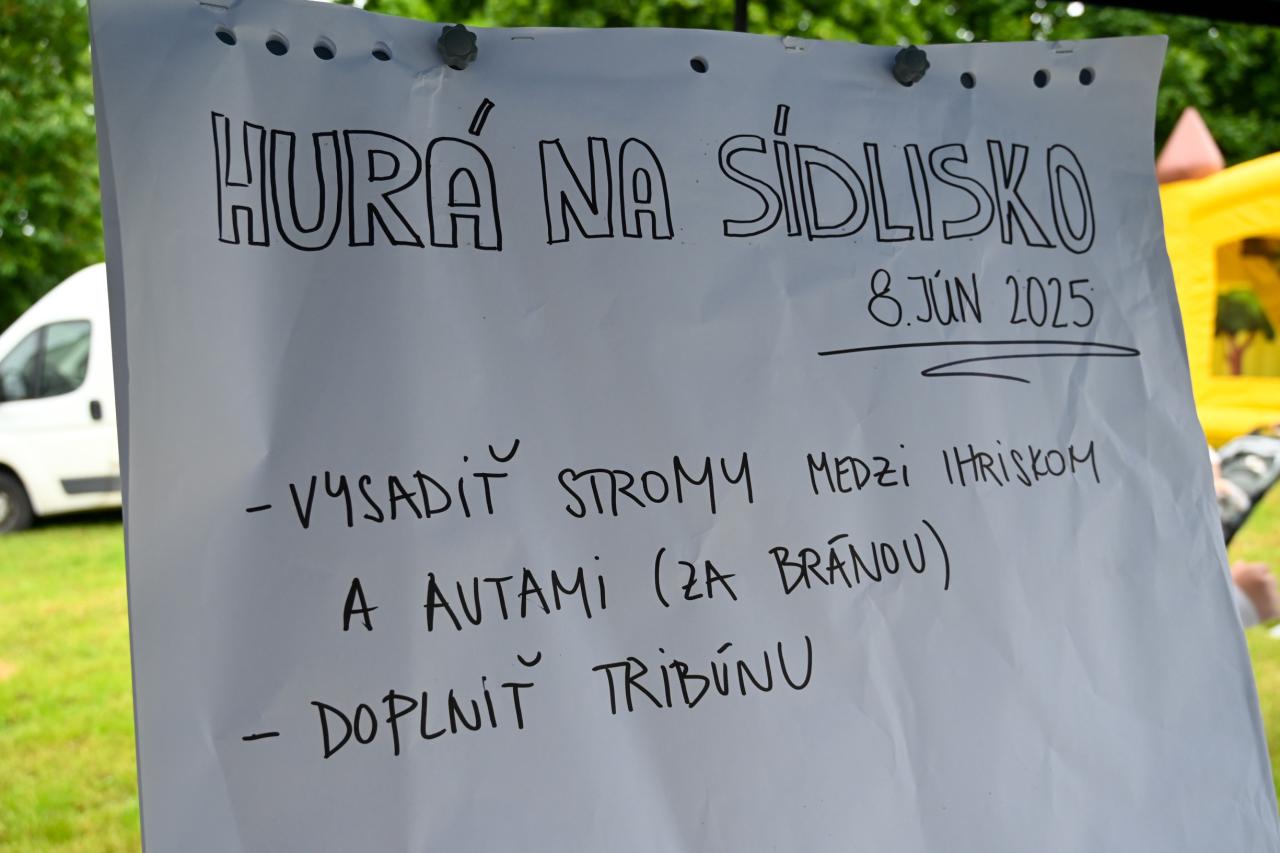 HURÁ NA SÍDLISKO
8. JÚN 2025
- VYSADIŤ STROMY MEDZI IHRISKOM
A AUTAMI (ZA BRÁNOU)
- DOPLNIŤ TRIBÚNU